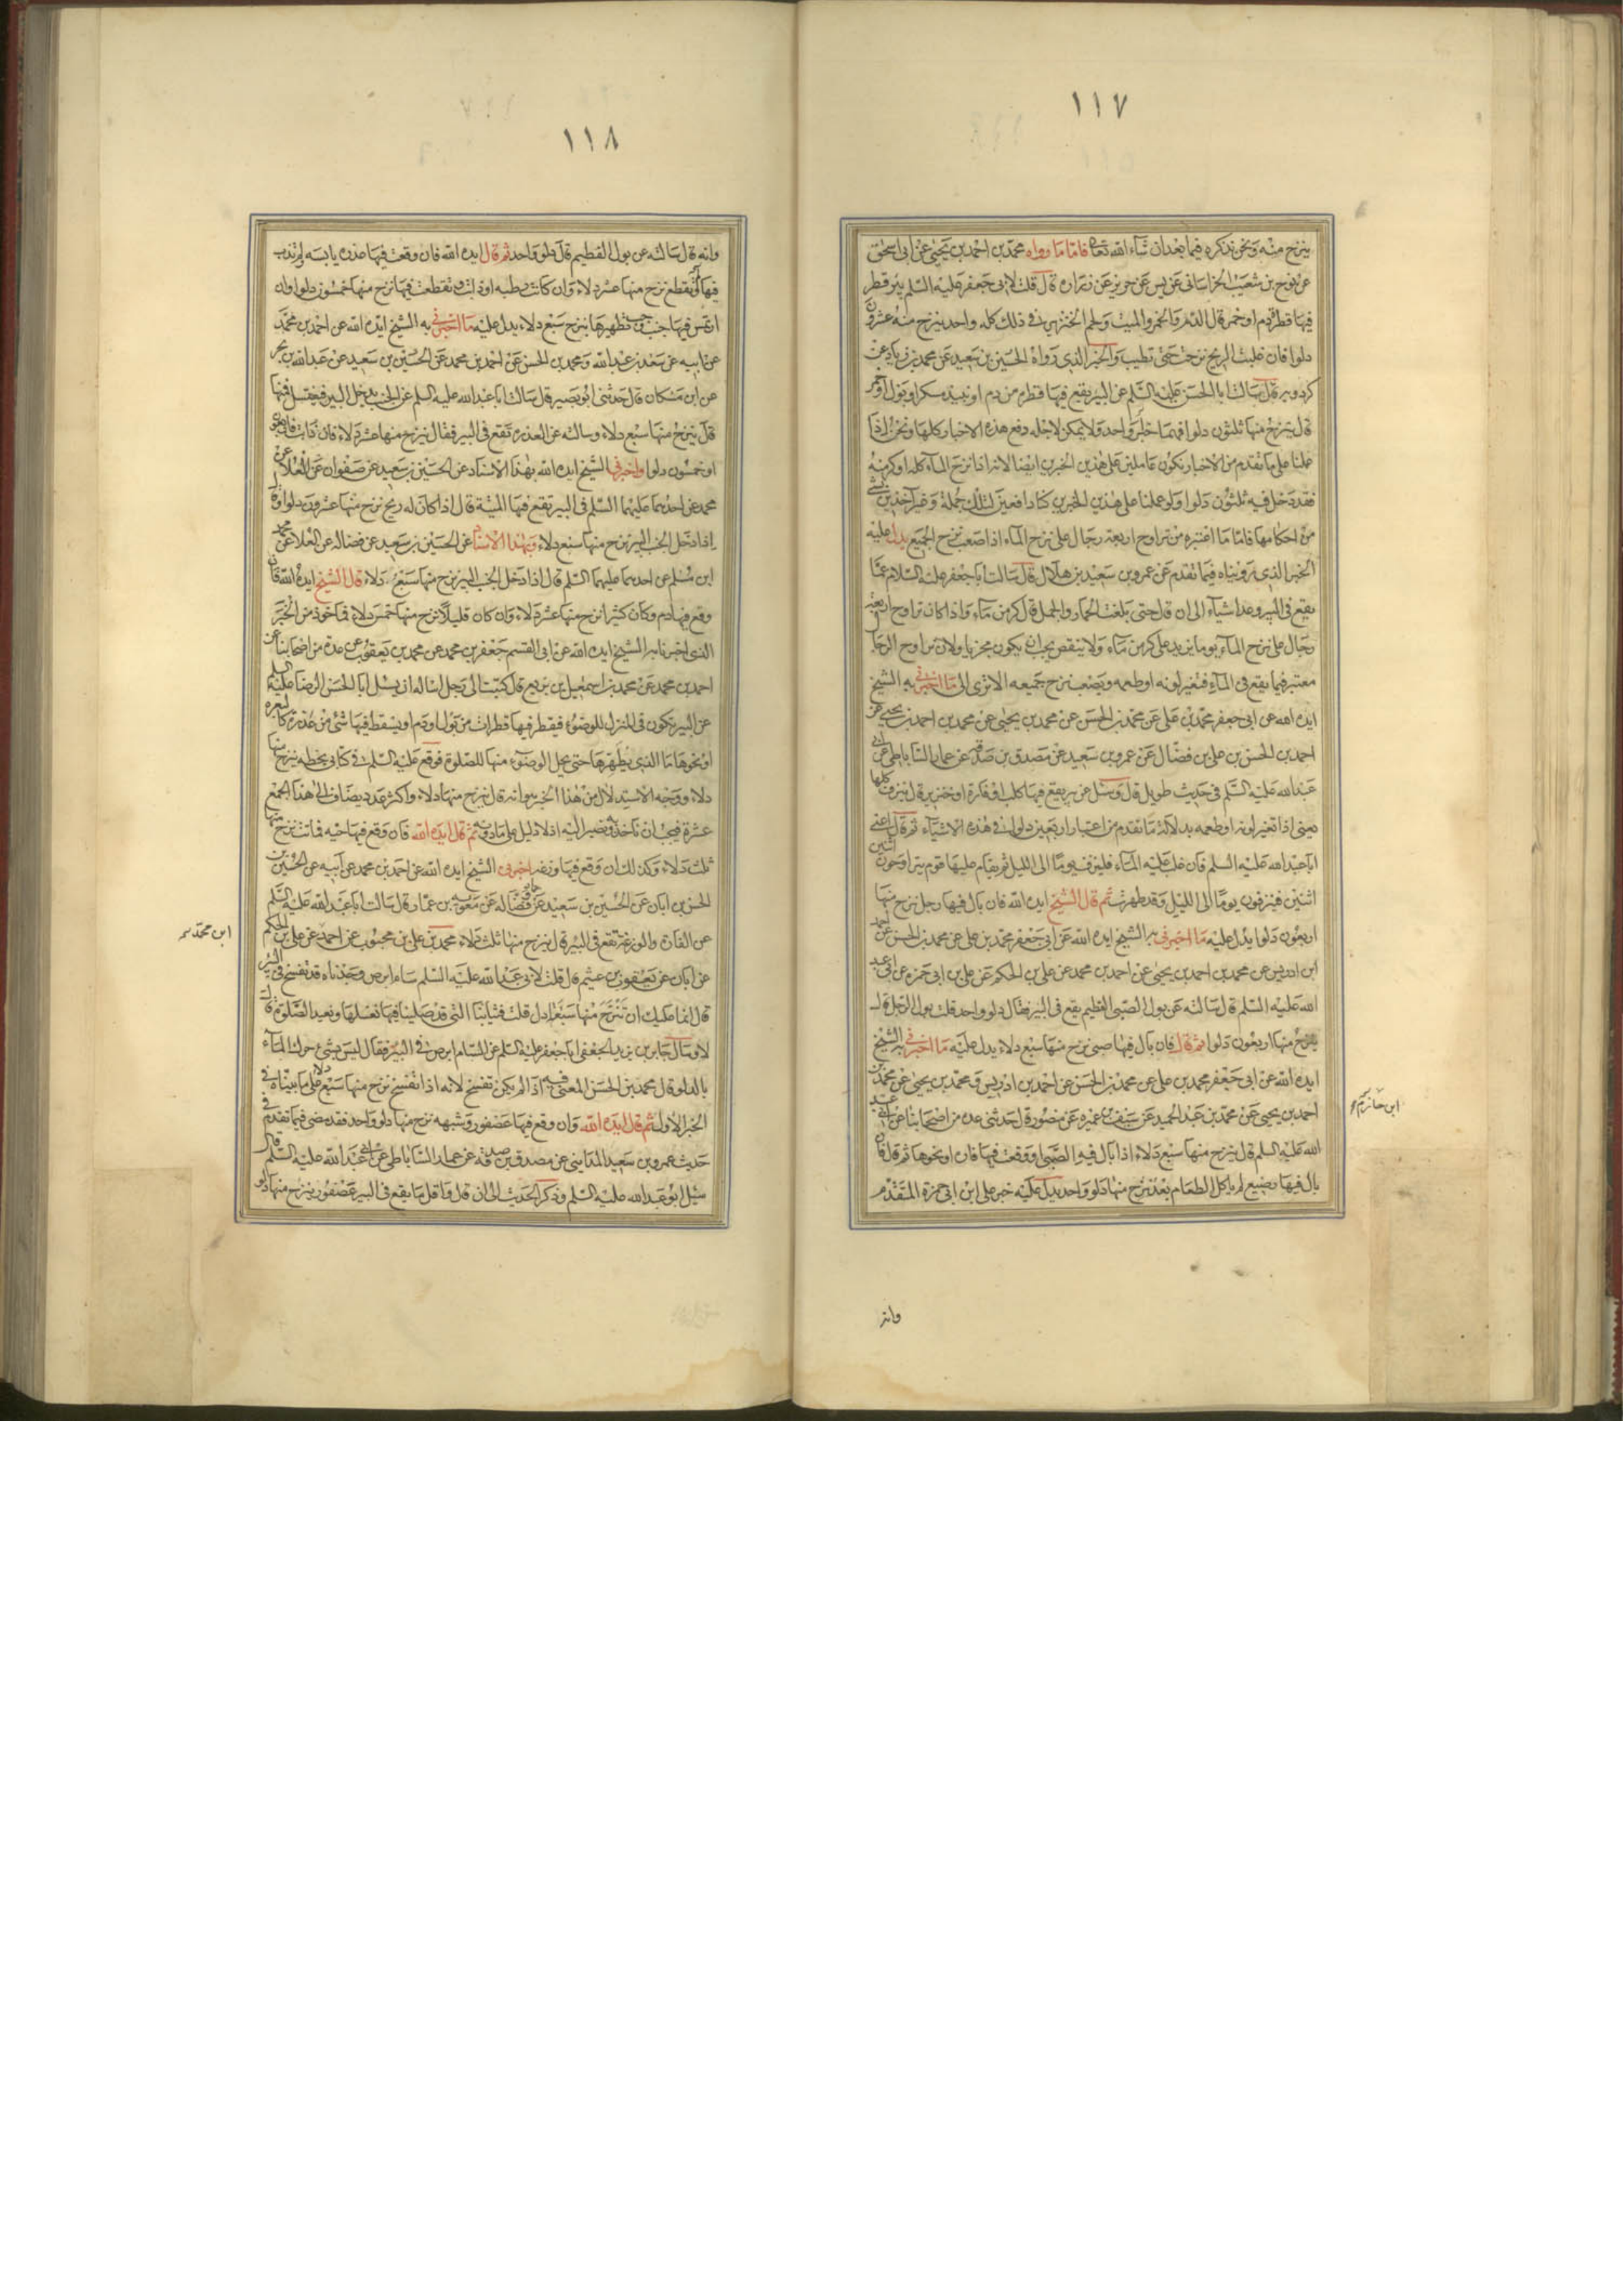 ١١٧
ينزح منه ونحن نذكره فيما بعد ان شاء الله تعا فاما ما رواه محمد بن احمد بن يحيى عن ابى اسحق
عن نوح بن شعيب الخراسانى عن يس عن حريز عن زرارة قال قلت لابى جعفر عليه السلم بئر قطر
فيها قطرة دم او خمر قال الدم والخمر والميت ولحم الخنزير فى ذلك كله واحد ينزح منه عشرون
دلوا فان غلبت الريح نزحت حتى تطيب والخبر الذى رواه الحسين بن سعيد عن محمد بن زياد عن
كردويه قال سالت ابا الحسن عليه السلم عن البير يقع فيها قطرة من دم او نبيذ مسكر او بول او خمر
قال ينزح منها ثلثون دلوا فهما خبر واحد ولا يمكن لاجله دفع هذه الاخبار كلها ونحن اذا
عملنا على ما تقدم من الاخبار نكون عاملين على هذين الخبرين ايضا لانه اذا نزح الماء كله او كر منه
فقد دخل فيه ثلثون دلوا ولو عملنا على هذين الخبرين كنا دافعين لتلك جملة وغير آخذين بشئ
من احكامها فاما ما اعتبره من تراوح اربعة رجال على نزح الماء اذا صعب نزح الجميع يدل عليه
الخبر الذى رويناه فيما تقدم عن عمرو بن سعيد بن هلال قال سالت ابا جعفر عليه السلام عما
يقع فى البير وعد اشياء الى ان قال حتى بلغت الحمار والجمل قال كر من ماء واذا كان تراوح اربعة
رجال على نزح الماء يوما يزيد على كر من ماء ولا ينقص يجب ان يكون مجزيا ولان تراوح الرجال
معتبر فيما يقع فى الماء فتغير لونه او طعمه ويصعب نزح جميعه الا ترى الى ما اخبرنى به الشيخ
ايده الله عن ابى جعفر محمد بن على عن محمد بن الحسن عن محمد بن يحيى عن محمد بن احمد بن يحيى عن
احمد بن الحسن بن على بن فضال عن عمرو بن سعيد عن مصدق بن صدقة عن عمار الساباطى عن ابى
عبد الله عليه السلم فى حديث طويل قال وسئل عن بير يقع فيها كلب او فارة او خنزير قال تنزف كلها
يعنى اذا تغير لونه او طعمه بدلالة ما تقدم من اعتبار اربعين دلوا فى هذه الاشياء ثم قال اعنى
ابا عبد الله عليه السلم فان غلب عليه الماء فلينزف يوما الى الليل ثم يقام عليها قوم يتراوحون اثنين
اثنين فينزفون يوما الى الليل وقد طهرت ثم قال الشيخ ايده الله فان بال فيها رجل نزح منها
اربعون دلوا يدل عليه ما اخبرنى به الشيخ ايده الله عن ابى جعفر محمد بن على عن محمد بن الحسن عن احمد
ابن ادريس عن محمد بن احمد بن يحيى عن احمد بن محمد عن على بن الحكم عن على بن ابى حمزه عن ابى عبد
الله عليه السلم قال سالته عن بول الصبى الفطيم يقع فى البير فقال دلو واحد قلت بول الرجل قال
ينزح منها اربعون دلوا ثم قال فان بال فيها صبى نزح منها سبع دلاء يدل عليه ما اخبرنى به الشيخ
ايده الله عن ابى جعفر محمد بن على عن محمد بن الحسن عن احمد بن ادريس ومحمد بن يحيى عن محمد بن
احمد بن يحيى عن محمد بن عبد الحميد عن سيف بن عميره عن منصور قال حدثنى عدة من اصحابنا عن ابى عبد
الله عليه السلم قال ينزح منها سبع دلاء اذا بال فيها الصبى او وقعت فيها فارة او نحوها ثم قال فان
بال فيها رضيع لم ياكل الطعام بعد نزح منها دلو واحد يدل عليه خبر على ابن ابى حمزة المتقدم
وانه
١١٨
وانه قال سالته عن بول الفطيم قال دلو واحد ثم قال ايده الله فان وقعت فيها عذره يابسه لم تذب
فيها وتقطع نزح منها عشر دلاء وان كانت رطبه او ذابت وتقطعت فيها نزح منها خمسون دلوا وان
ارتمس فيها جنب وجب تطهيرها بنزح سبع دلاء يدل عليه ما اخبرنى به الشيخ ايده الله عن احمد بن محمد
عن ابيه عن سعد بن عبد الله ومحمد بن الحسن عن احمد بن محمد عن الحسين بن سعيد عن عبد الله بن بحر
عن ابن مسكان قال حدثنى ابو بصير قال سالت ابا عبد الله عليه السلم عن الجنب يدخل البير فيغتسل فيها
قال ينزح منها سبع دلاء وسالته عن العذرة تقع فى البير فقال ينزح منها عشر دلاء فان ذابت فاربعون
او خمسون دلوا واخبرنى الشيخ ايده الله بهذا الاسناد عن الحسين بن سعيد عن صفوان عن العلا عن
محمد عن احدهما عليهما السلم فى البير تقع فيها الميتة قال اذا كان له ريح نزح منها عشرون دلوا وقال
اذا دخل الجنب البير نزح منها سبع دلاء وبهذا الاسناد عن الحسين بن سعيد عن فضاله عن العلا عن محمد
ابن مسلم عن احدهما عليهما السلم قال اذا دخل الجنب البير نزح منها سبع دلاء قال الشيخ ايده الله فان
وقع فيها دم وكان كثيرا نزح منها عشر دلاء وان كان قليلا نزح منها خمس دلاء فماخوذ من الخبر
الذى اخبرنا به الشيخ ايده الله عن ابى القسم جعفر بن محمد عن محمد بن يعقوب عن عدة من اصحابنا عن
احمد بن محمد عن محمد بن اسمعيل بن بزيع قال كتبت الى رجل اساله ان يسئل ابا الحسن الرضا عليه السلم
عن البير تكون فى المنزل للوضوء فيقطر فيها قطرات من بول او دم او يسقط فيها شئ من عذرة كالبعره
او نحوها ما الذى يطهرها حتى يحل الوضوء منها للصلوة فوقع عليه السلم فى كتابى بخطه ينزح منها
دلاء ووجه الاستدلال من هذا الخبر هو انه قال ينزح منها دلاء واكثر عدد يضاف الى هذا الجمع
عشرة فيجب ان ناخذ به ونصير اليه اذ لا دليل على ما دونه ثم قال ايده الله فان وقع فيها حيه فماتت نزح منها
ثلث دلاء وكذلك ان وقع فيها وزغه اخبرنى الشيخ ايده الله عن احمد بن محمد عن ابيه عن الحسين بن
الحسن بن ابان عن الحسين بن سعيد عن حماد وفضاله عن معوية بن عمار قال سالت ابا عبد الله عليه السلم
عن الفارة والوزغة تقع فى البير قال ينزح منها ثلث دلاء محمد بن على بن محبوب عن احمد عن على بن الحكم
عن ابان عن يعقوب بن عثيم قال قلت لابى عبد الله عليه السلم سام ابرص وجدناه قد تفسخ فى البير
قال انما عليك ان تنزح منها سبع ادل قلت فثيابنا التى قد صلينا فيها نغسلها ونعيد الصلوة قال
لا وسال جابر بن يزيد الجعفى ابا جعفر عليه السلم عن السام ابرص فى البير فقال ليس بشئ حرك الماء
بالدلو قال محمد بن الحسن المعنى فيه اذا لم يكن تفسخ لانه اذا تفسخ نزح منها سبع دلاء على ما بيناه فى
الخبر الاول ثم قال ايده الله وان وقع فيها عصفور وشبهه نزح منها دلو واحد فقد مضى فيما تقدم فى
حديث عمرو بن سعيد المدايني عن مصدق بن صدقه عن عمار الساباطى عن ابى عبد الله عليه السلم قال
سئل ابو عبد الله عليه السلم وذكر الحديث الى ان قال واقل ما يقع فى البير عصفور ينزح منها دلو
ابن محمد